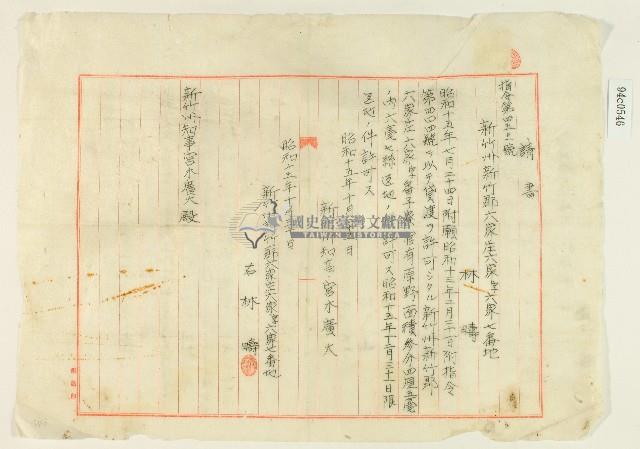 94c0546
請書
指令第四五三號
新竹州新竹郡六家庄六家字六家七番地
林 疇
昭和十五年七月二十四日附願昭和十三年二月二十一日附指令
第四四四號ヲ以テ貸渡ヲ許可シタル新竹州新竹郡
六家庄六家字番子寮官有原野面積參分四厘五毫
ノ內六毫七絲返地ノ許可ス昭和十五年十二月三十一日限
昭和十五年十月 日
新竹州知事 宮木廣大
昭和十五年十月 日
新竹州新竹郡六家庄六家字六家七番地
右 林 疇
新竹州知事宮木廣大殿
國史館臺灣文獻館
TAIWAN HISTORICA